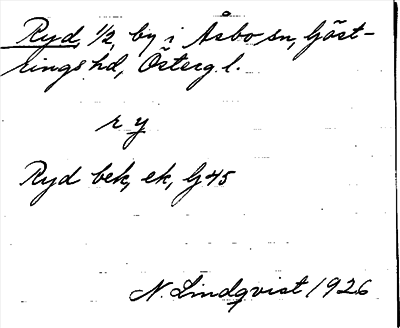 Ryd, 1/2, by i Åsbo sn, Göst-
rings hd, Östergl.
ry
Ryd bek, ek, G 45
N. Lindqvist 1926